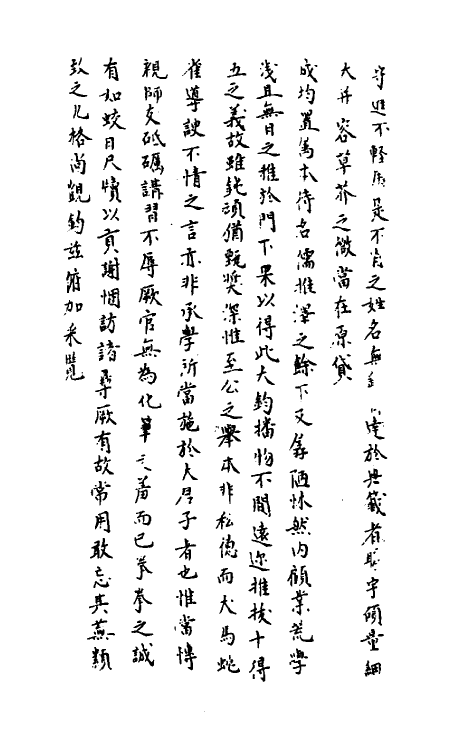 守進不輕用是不肖之姓名無　達於典籤者恥宇碩量細
大并容草芥之微當在原貸
成均置篤本待名儒推澤之餘下又孱陋怵然內顧業荒學
淺且無日之雅於門下果以得此大鈞播物不間遠邇推拔十得
五之義故雖鈍頑猶甄獎深惟至公之舉本非私德而犬馬蛇
雀導諛不情之言亦非承學所當施於大君子者也惟當博
親師友砥礪講習不辱厥官無為化筆之羞而已拳拳之誠
有如皎日尺牘以貢謝悃訪諸尋厥有故常用敢忘其蕪纇
效之几格尚覬鈞茲俯加采覽